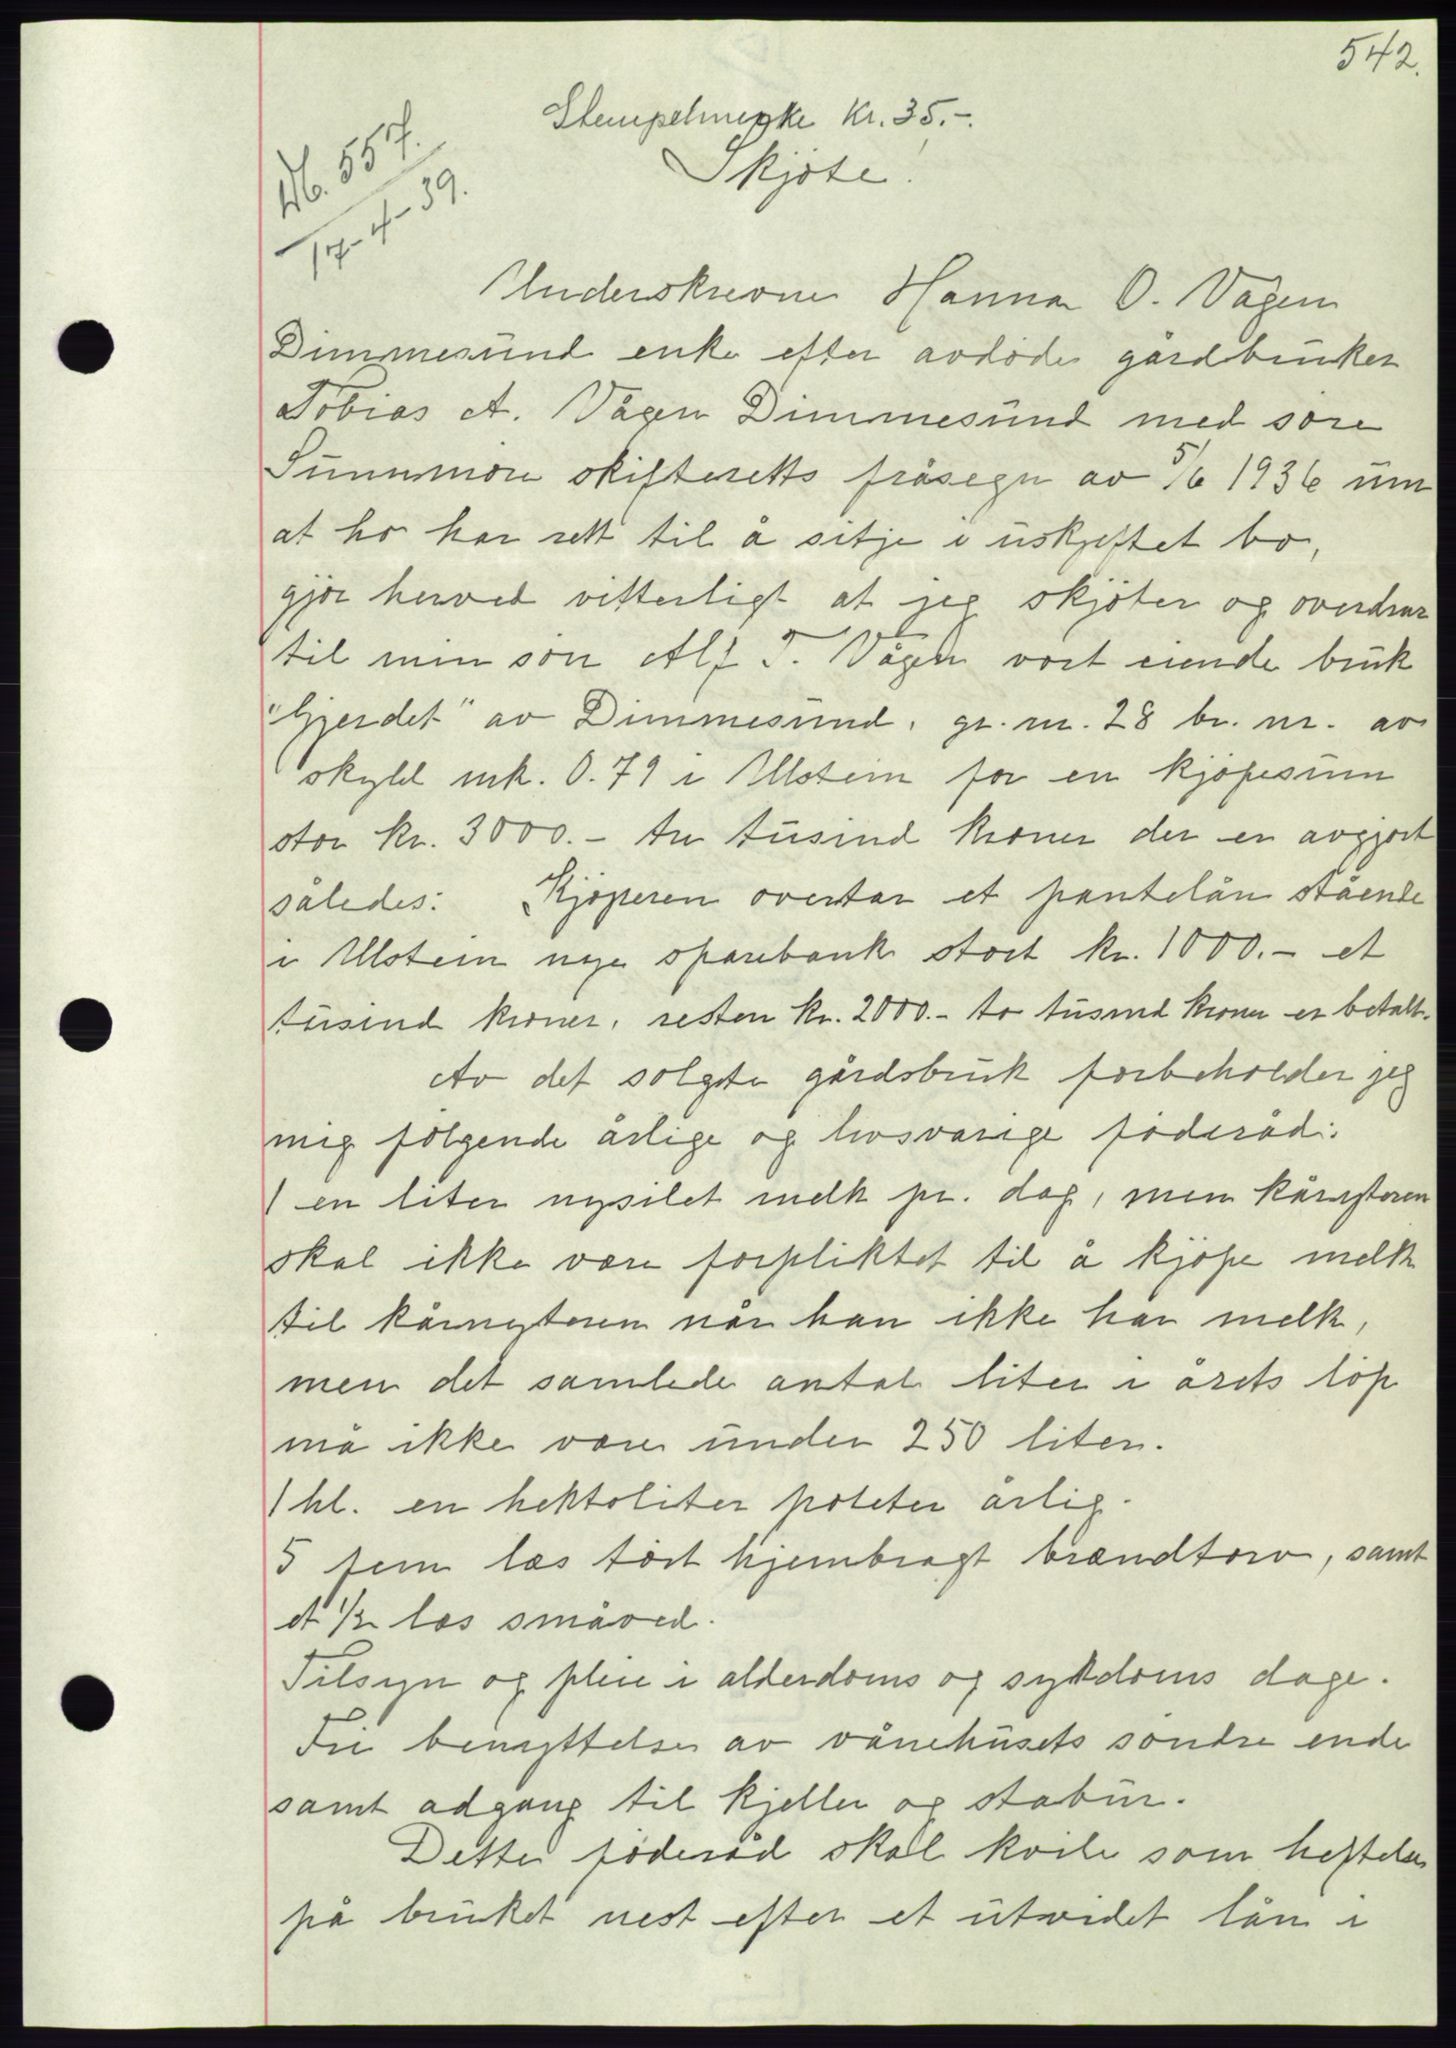 542.
Stempelmerke kr. 35.-.
Skjøte!
Nb. 557.
17-4-39.
Underskrevne Hanna O. Vågen
Dimmesund enke efter avdøde gårdbruker
Tobias A. Vågen Dimmesund med søre
Sunnmøre skifteretts fråsegn av 5/6 1936 um
at ho har rett til å sitje i uskjiftet bo,
gjør herved vitterligt at jeg skjøter og overdrar
til min søn Alf T. Vågen vort eiende bruk
"Gjerdet" av Dimmesund. gr. nr. 28 br. nr. av
skyld mk. 0.79 i Ulstein for en kjøpesum
stor kr. 3000.- tre tusind kroner der er avgjort
således: Kjøperen overtar et pantelån stående
i Ulstein nye sparebank stort kr. 1000.- et
tusind kroner, resten kr. 2000.- to tusind kroner er betalt.
Av det solgte gårdsbruk forbeholder jeg
mig følgende årlige og livsvarige føderåd:
1 en liter nysilet melk pr. dag, men kårnyteren
skal ikke være forpliktet til å kjøpe melk
til kårnyteren når han ikke har melk,
men det samlede antal liter i årets løp
må ikke være under 250 liter.
1 hl. en hektoliter poteter årlig.
5 fem læs tørt hjembragt brændtorv, samt
et 1/2 læs småved.
Tilsyn og pleie i alderdoms og sykdoms dage.
Fri benyttelse av vånehusets søndre ende
samt adgang til kjeller og stabur.
Dette føderåd skal kvile som heftelse
på bruket nest efter et utvidet lån i